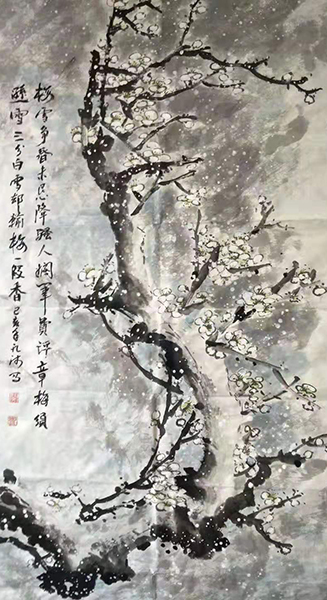 梅雪争春未忍降骚人阁笔费评章梅须
逊雪三分白雪却输梅一段香己亥年